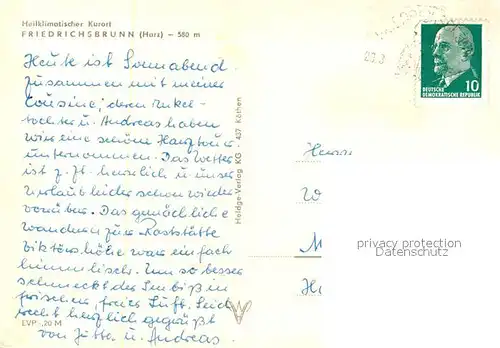 Heilklimatischer Kurort
FRIEDRICHSBRUNN (Harz) – 580 m
Heute ist Sonnabend
zusammen mit meiner
Cousine, deren Enkel-
tochter u. Andreas haben
wir eine schöne Harztour
unternommen. Das Wetter
ist z. Zt. herrlich u. unser
Urlaub leider schon wieder
vorüber. Das gemächliche
wandern zur Raststätte
Viktorshöhe war einfach
himmlisch. Um so besser
schmeckt der Imbiß in
frischer, freier Luft. Seid
recht herzlich gegrüßt
von Jutta u. Andreas.
EVP -,20 M
Heldge-Verlag KG 437 Köthen
DEUTSCHE
DEMOKRATISCHE REPUBLIK
10
Herrn
W
M
privacy protection
Datenschutz